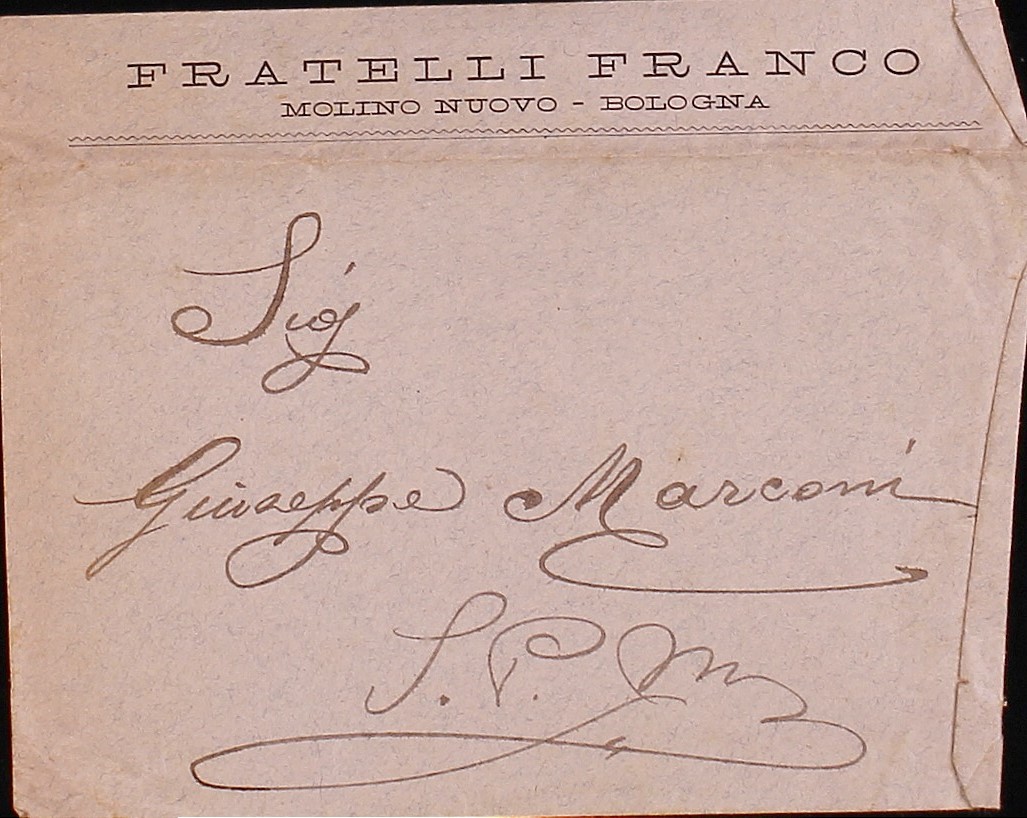 FRATELLI FRANCO
MOLINO NUOVO - BOLOGNA
Sig
Giuseppe Marconi
S. P. M